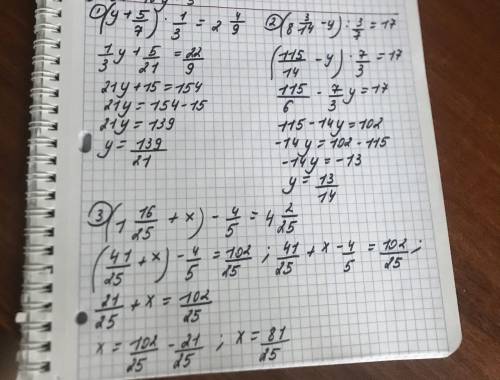 ① (y + 5/7) · 1/3 = 2 4/9
1/3 y + 5/21 = 22/9
21y + 15 = 154
21y = 154 - 15
21y = 139
y = 139/21
② (8 3/14 - y) : 3/7 = 17
(115/14 - y) · 7/3 = 17
115/6 - 7/3 y = 17
115 - 14y = 102
-14y = 102 - 115
-14y = -13
y = 13/14
③ (1 16/25 + x) - 4/5 = 4 2/25
(41/25 + x) - 4/5 = 102/25 ; 41/25 + x - 4/5 = 102/25 ;
21/25 + x = 102/25
x = 102/25 - 21/25 ; x = 81/25